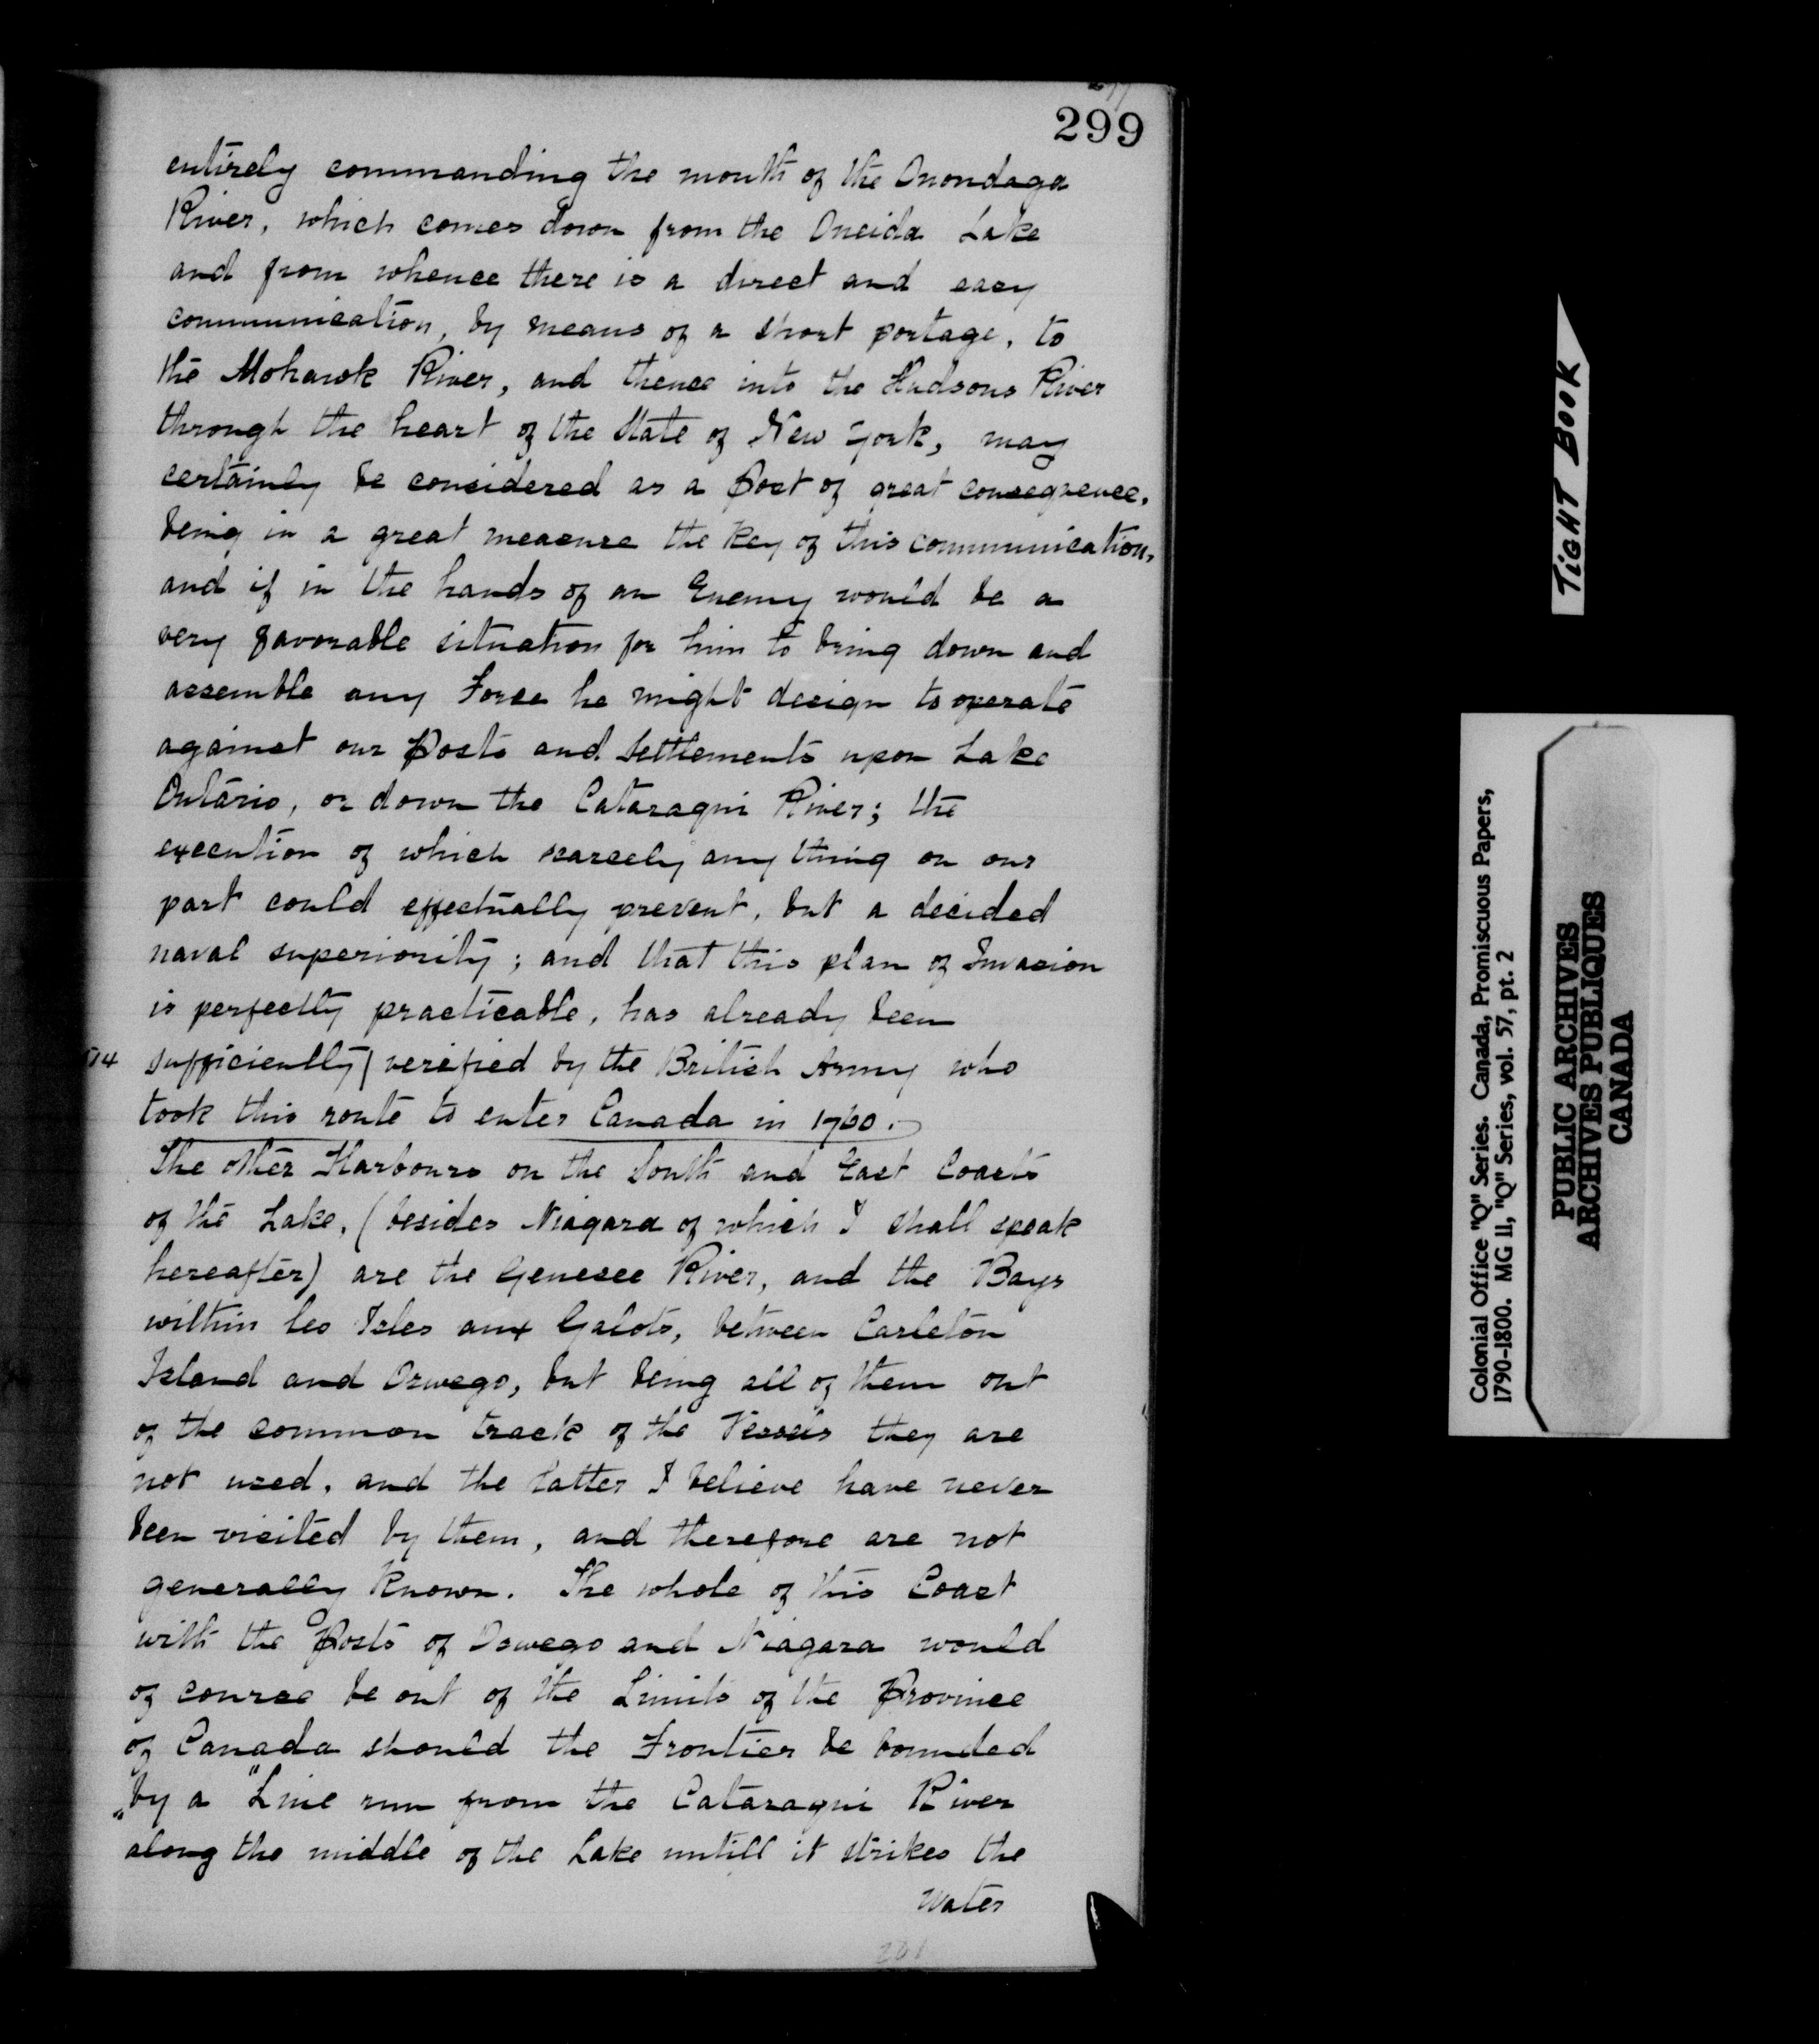 299
entirely commanding the mouth of the Onondaga
River, which comes down from the Oneida Lake
and from whence there is a direct and easy
communication, by means of a short portage, to
the Mohawk River, and thence into the Hudsons River
through the heart of the State of New York, may
certainly be considered as a Post of great consequence,
being in a great measure the key of this communication,
and if in the hands of an Enemy would be a
very favorable situation for him to bring down and
assemble any Force he might design to operate
against our Posts and Settlements upon Lake
Ontario, or down the Cataraqui River; the
execution of which scarcely any thing on our
part could effectually prevent, but a decided
naval superiority; and that this plan of Invasion
is perfectly practicable, has already been
sufficiently verified by the British Army who
took this route to enter Canada in 1760.
The other Harbours on the South and East Coasts
of the Lake, (besides Niagara of which I shall speak
hereafter) are the Genesee River, and the Bays
within les Isles aux Galots, between Carleton
Island and Oswego, but being all of them out
of the common track of the Vessels they are
not used, and the latter I believe have never
been visited by them, and therefore are not
generally known. The whole of this Coast
with the Posts of Oswego and Niagara would
of course be out of the Limits of the Province
of Canada should the Frontier be bounded
"by a "Line run from the Cataraqui River
along the middle of the Lake untill it strikes the
Water
TIGHT BOOK
Colonial Office "Q" Series. Canada, Promiscuous Papers,
1790-1800. MG 11, "Q" Series, vol. 57, pt. 2
PUBLIC ARCHIVES
ARCHIVES PUBLIQUES
CANADA